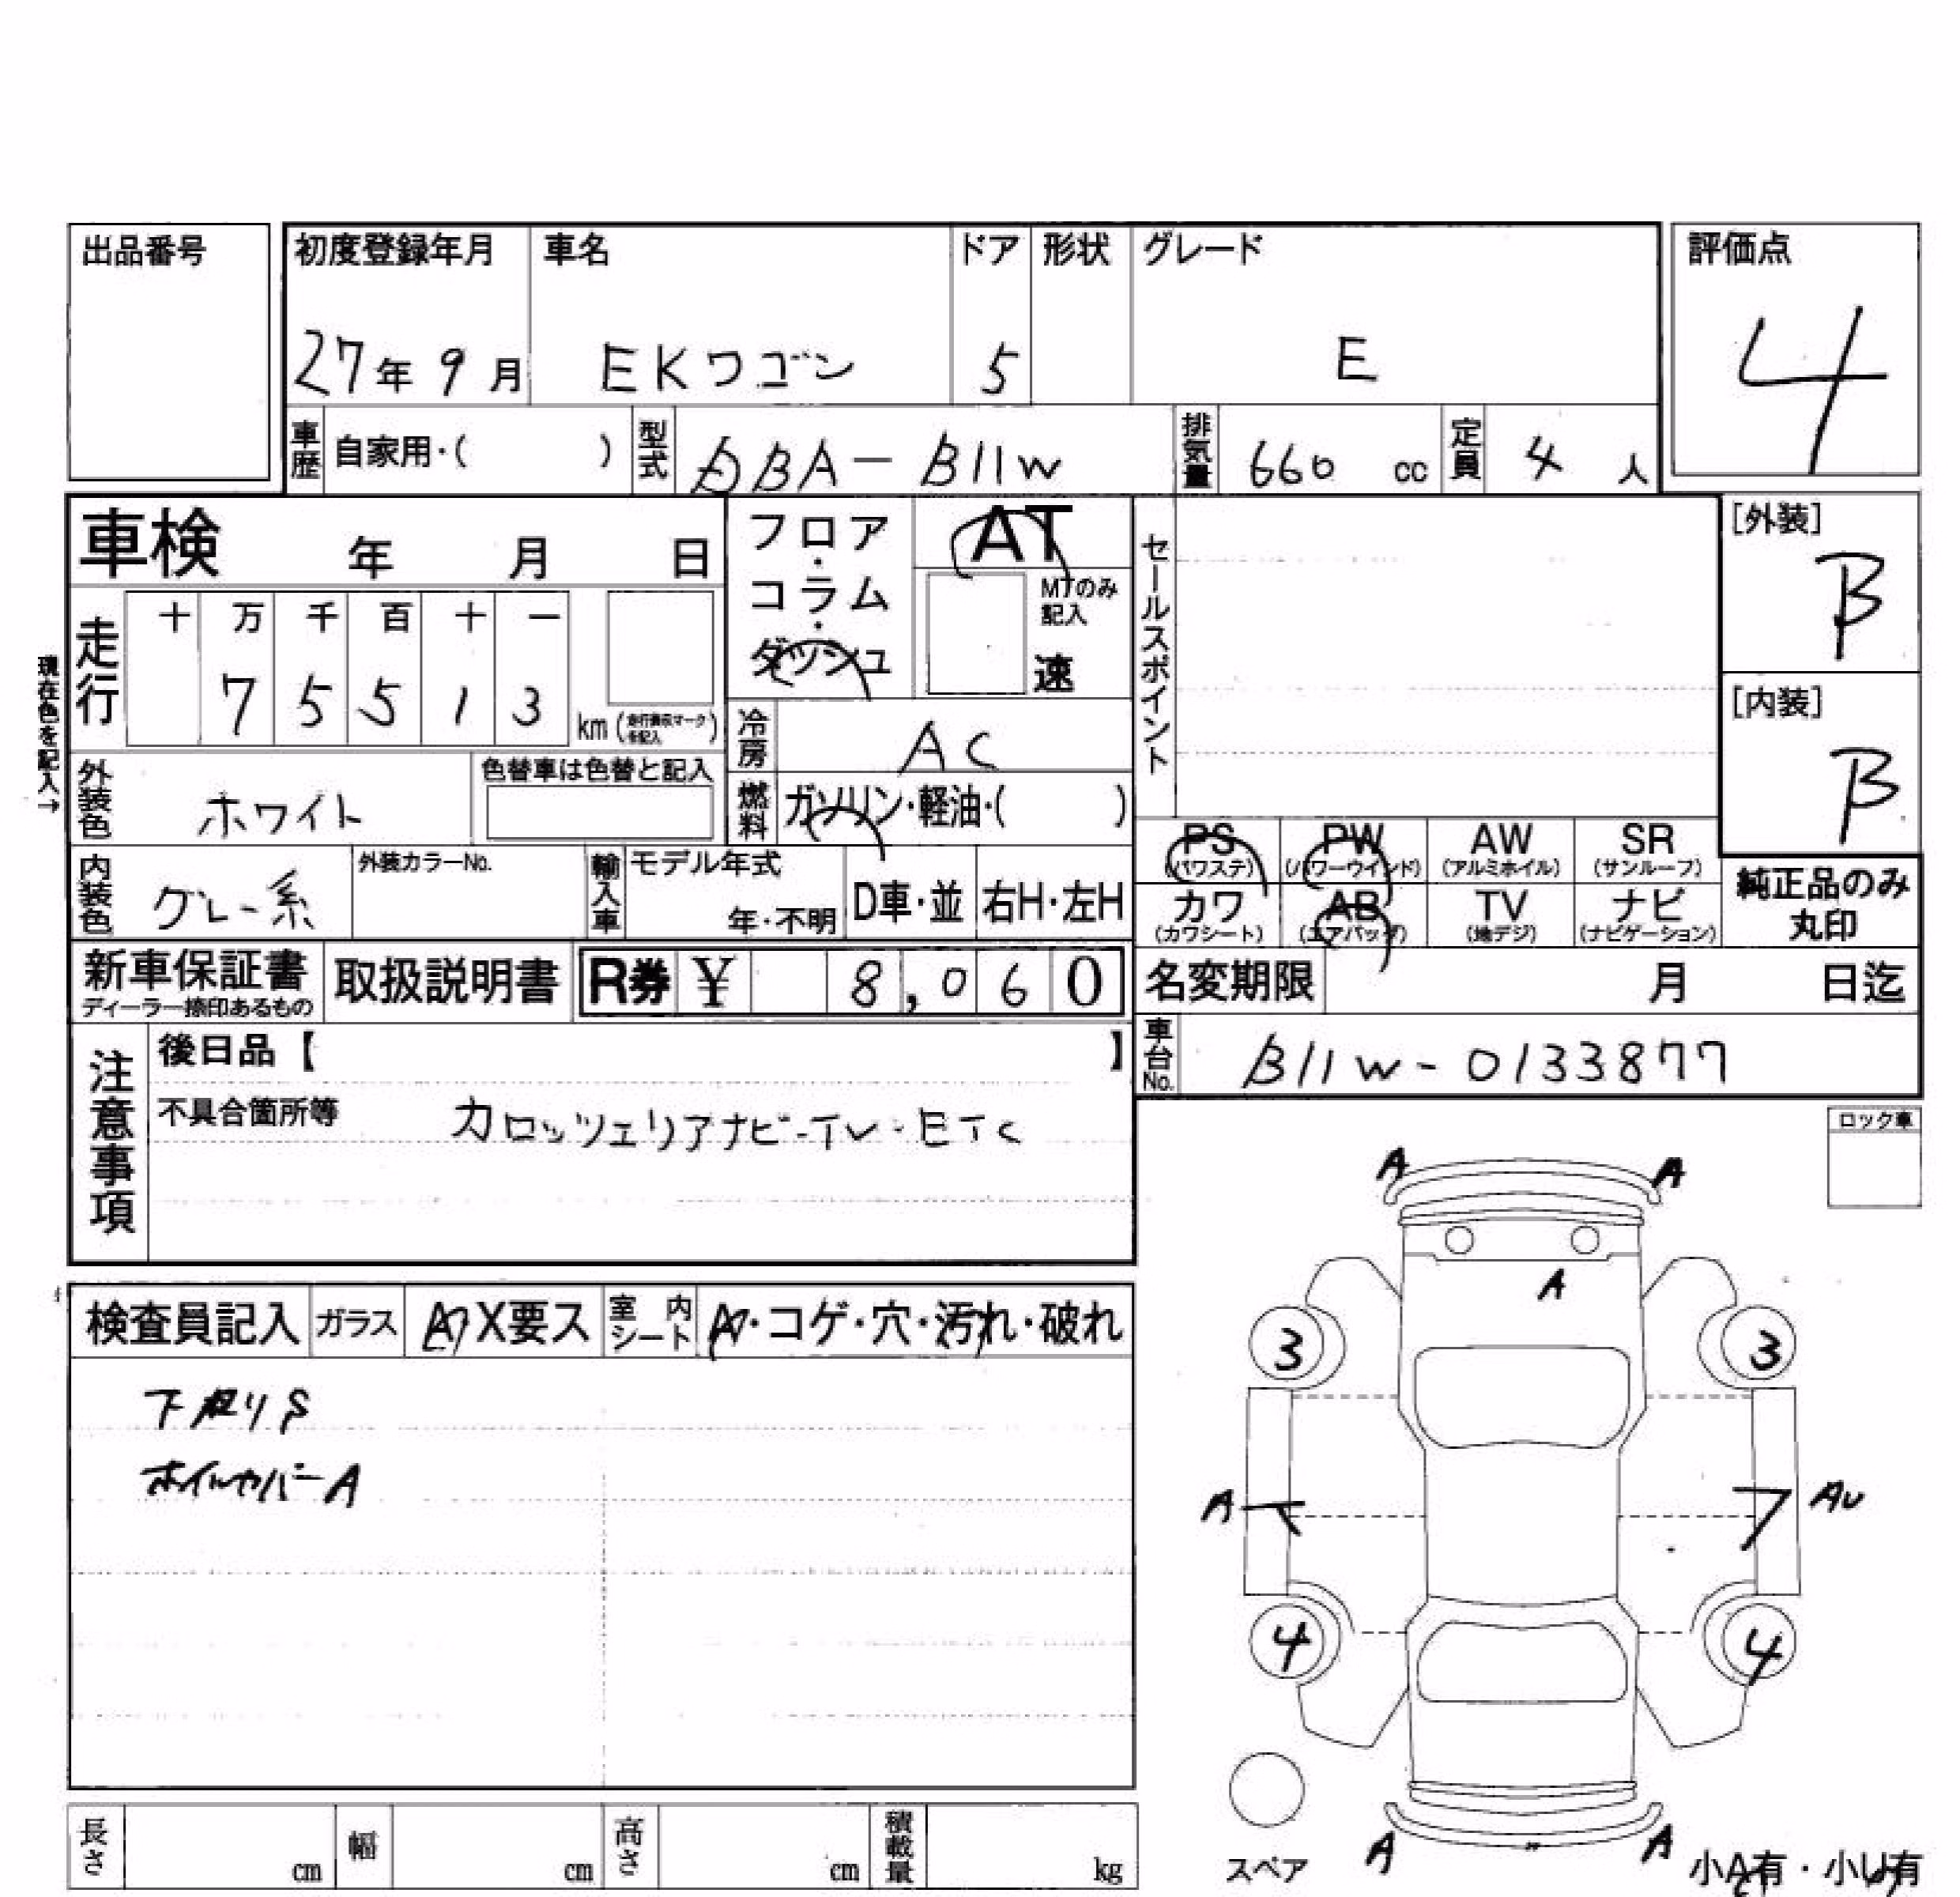 出品番号
初度登録年月 車名 ドア 形状 グレード 評価点
27年 9月 EKワゴン 5 E 4
車歴 自家用・( ) 型式 DBA-B11W 排気量 660 cc 定員 4 人
車検 年 月 日
フロア・コラム・ダッシュ AT
MTのみ記入
速
セールスポイント
[外装]
B
[内装]
B
現在色を記入→
走行 十 万 千 百 十 一
7 5 5 1 3 km
冷房 AC
外装色 ホワイト 色替車は色替と記入
燃料 ガソリン・軽油・( )
PS (パワステ) PW (パワーウインド) AW (アルミホイル) SR (サンルーフ)
カワ (カワシート) AB (エアバッグ) TV (地デジ) ナビ (ナビゲーション)
純正品のみ
丸印
内装色 グレー系 外装カラーNo. 輸入車 モデル年式 年・不明 D車・並 右H・左H
新車保証書 取扱説明書 R券 ¥ 8,060
ディーラー捺印あるもの
名変期限 月 日迄
車台No. B11W-0133877
注意事項
後日品【 】
不具合箇所等 カロッツェリアナビ-TV・ETC
ロック車
A A
A
3 3
A AU
4 4
A A
スペア
小A有・小U有
検査員記入 ガラス A X要ス 室内シート A・コゲ・穴・汚れ・破れ
下廻りS
ホイルカバーA
長さ cm 幅 cm 高さ cm 積載量 kg